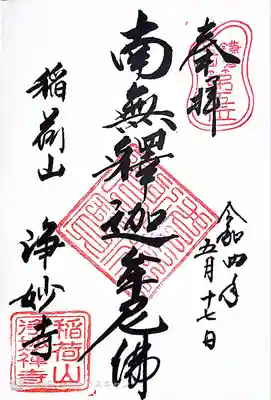 奉拝
令和四年
五月十七日
南無釋迦牟尼佛
稲荷山 浄妙寺
稲荷山
浄妙禅寺